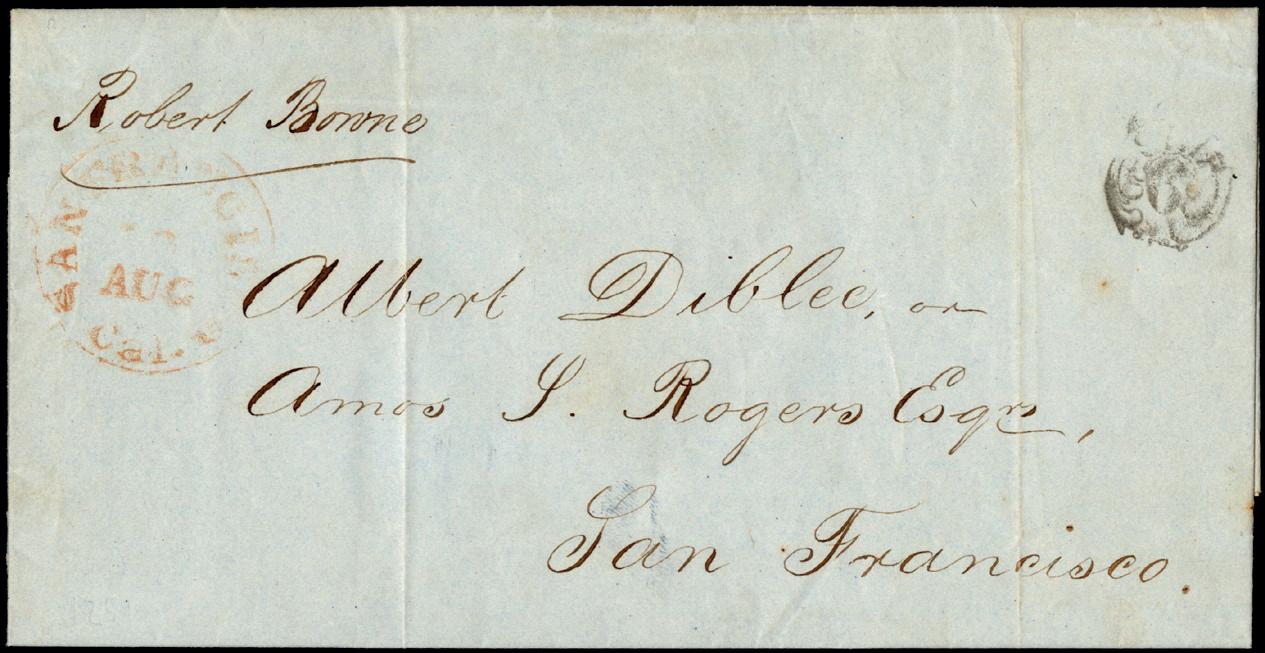 Robert Bowne
SAN FRANCISCO
AUG
Cal.
Albert Diblee, or
Amos S. Rogers Esqrs,
San Francisco.